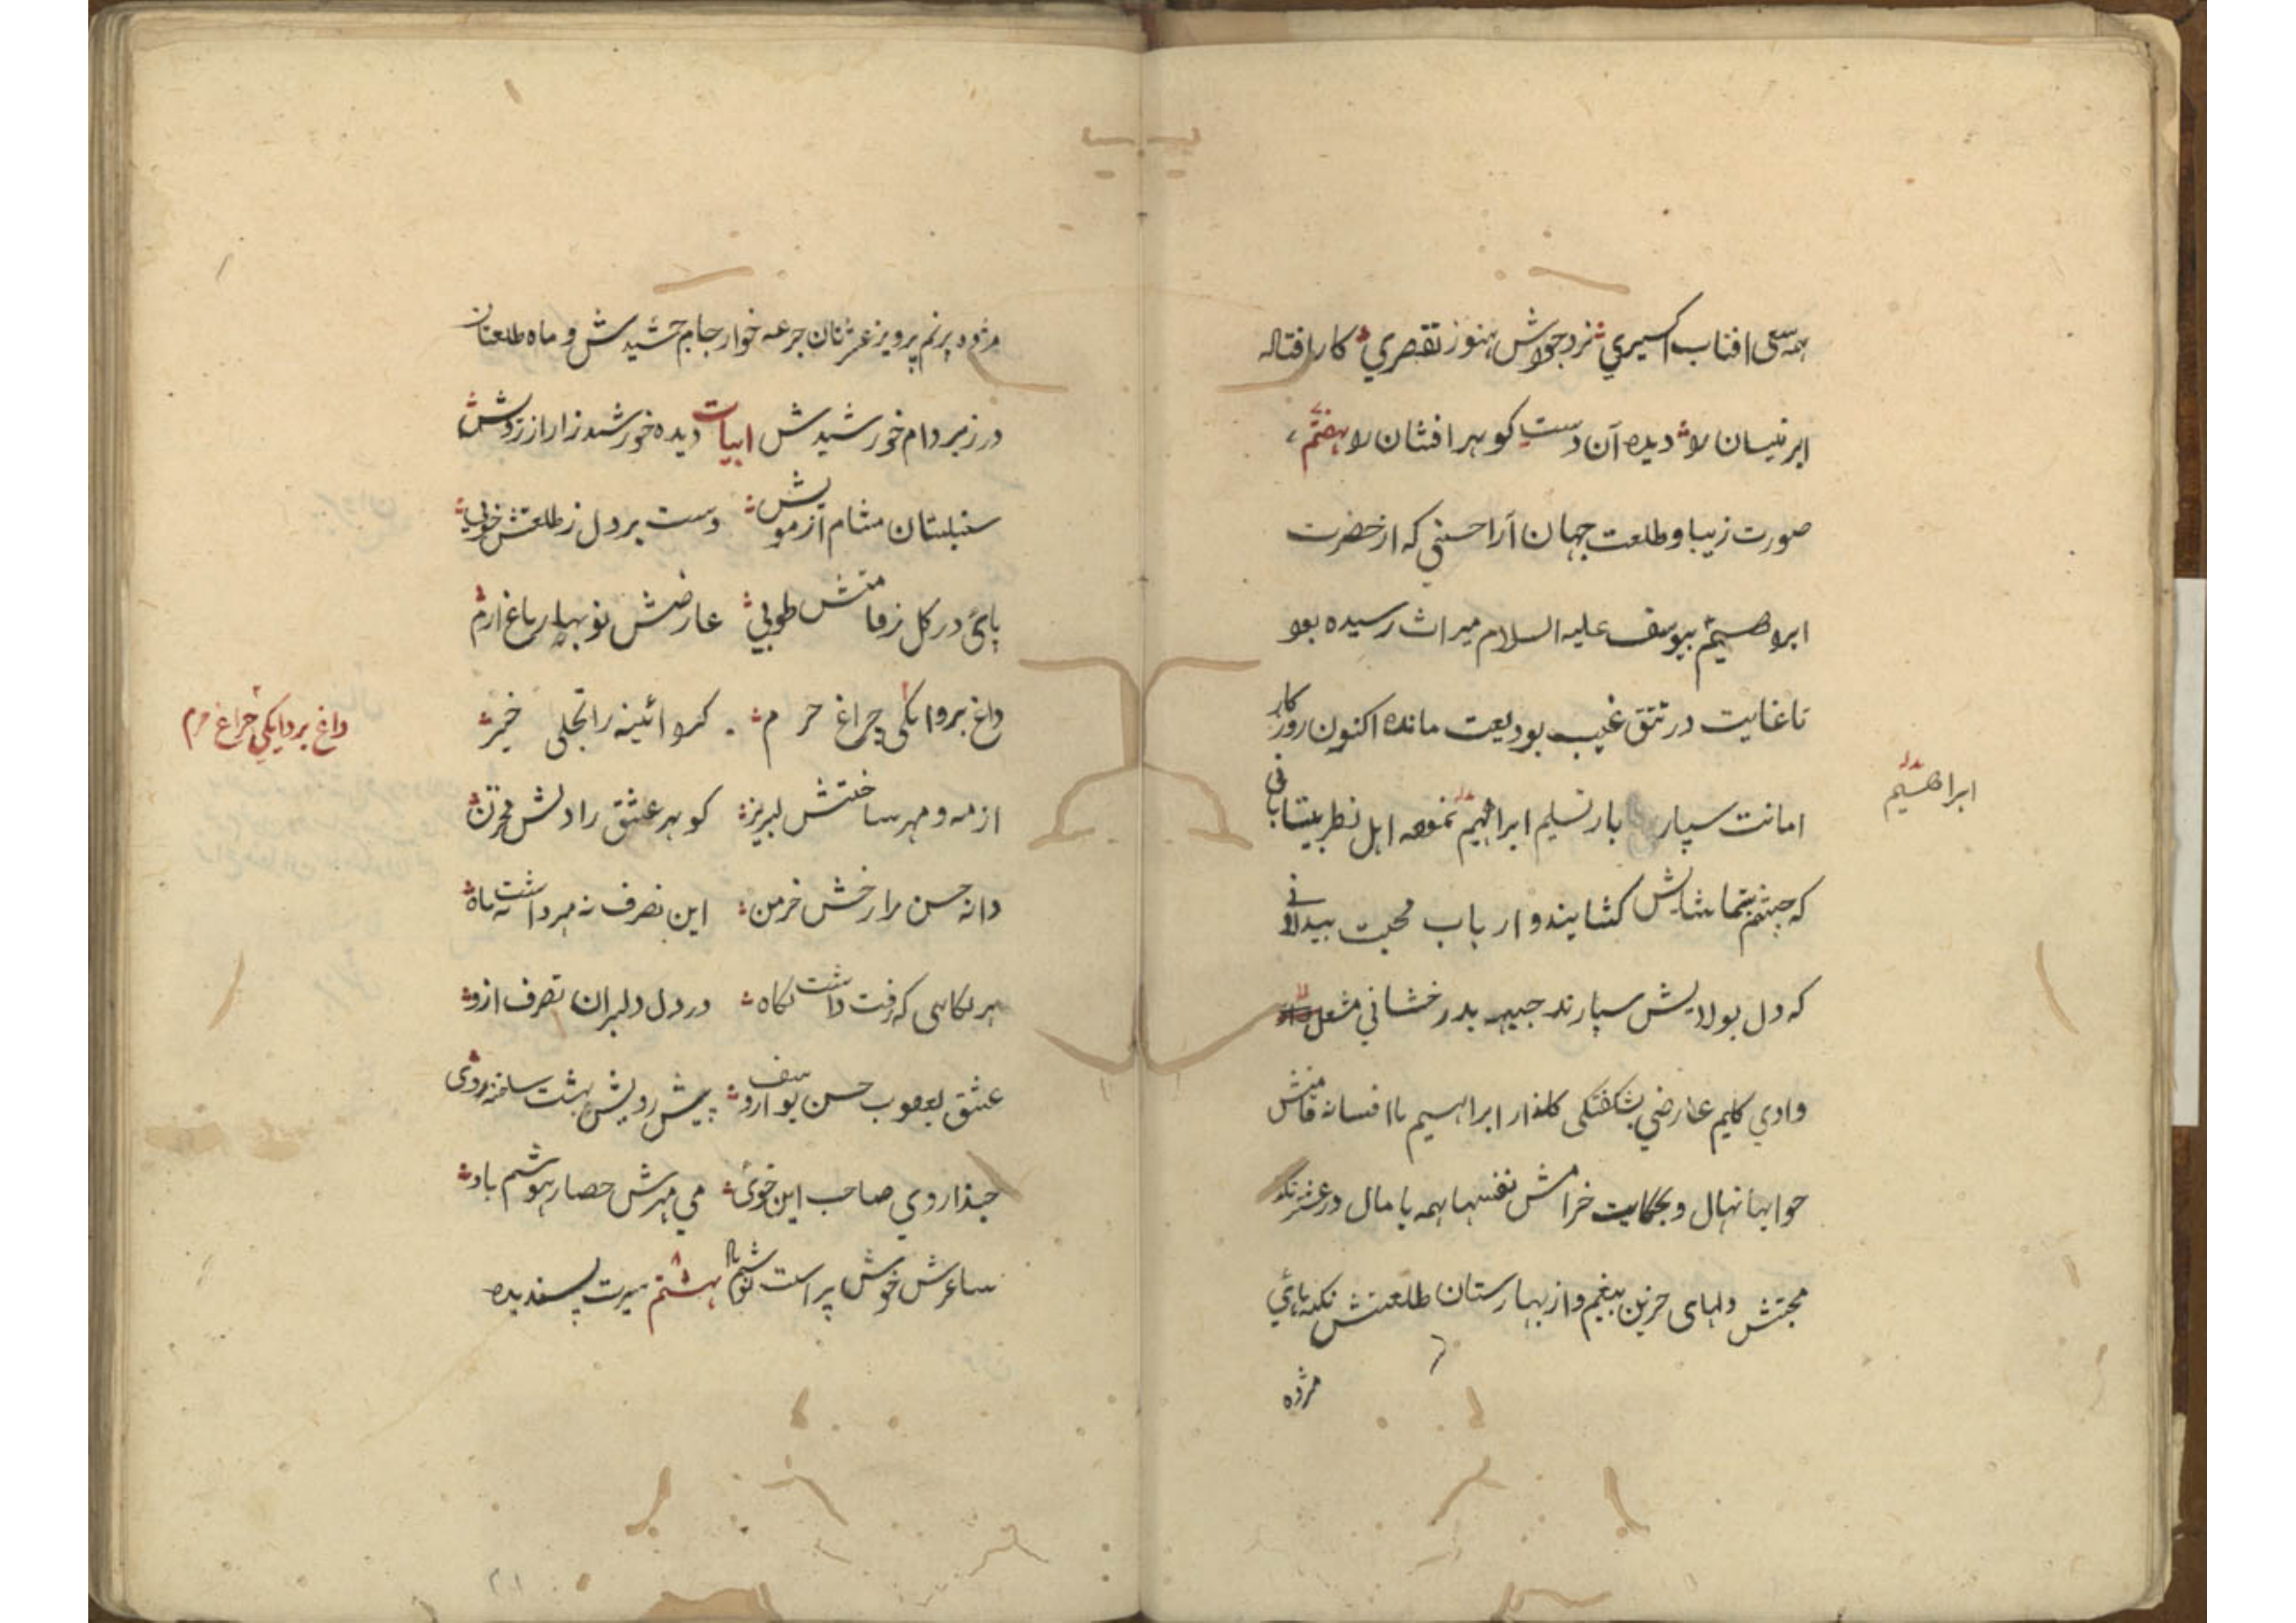 همه سعی افتاب اکسیری نزد جودش هنوز تقصری کار افتاله
ابر نیسان را دیده آن دست کوهر افشان را هفتم
صورت زیبا و طلعت جهان آرا حسنی که از حضرت
ابراهیم بیوسف علیه السلام میراث رسیده بود
تا غایت در تتق غیب بودیعت مانده اکنون روزکار
امانت سپار بار تسلیم ابراهیم نموده اهل نظر بیتابانی
ابراهیم
که چشم بتماشایش کشایند و ارباب محبت بیدلانی
که دل بولایش سپارند جبیهه بدرخشانی مشعل
وادی کلیم عارضی بشکفتکی کلذار ابراهیم با افسانه قامتش
خوابها نهال و بحکایت خرامش نفسها همه پامال در
محبتش دلهای حزین بیغم و از بهارستان طلعتش نکه‌های
مژده
مژده پرنم پرویز عشرتان جرعه خوار جام جمشیدش و ماه طلعتان
در زیر دام خورشیدش ابیات دیده خورشید زار از رویش
سنبلستان مشام از مویش دست بر دل ز طلعتش خوبی
پای در کل ز قامتش طوبی عارضش نوبهار باغ ارم
داغ پروانکی چراغ حرم کرد ائینه را تجلی خیز
داغ پروانکی چراغ حرم
از مه و مهر ساختش لبریز کوهر عشق را دلش مخزن
دانه حسن را رخش خرمن این تصرف نه مهر داشت نه ماه
هر نکاهی که رفت داشت نکاه در دل دلبران تصرف ازو
عشق یعقوب حسن یوسف ازو پیش رویش بهشت ساخته روی
حبذا روی صاحب این خوی می مهرش حصار هوشم باد
ساغرش خوش پر است نوشم باد هشتم سیرت پسندیده